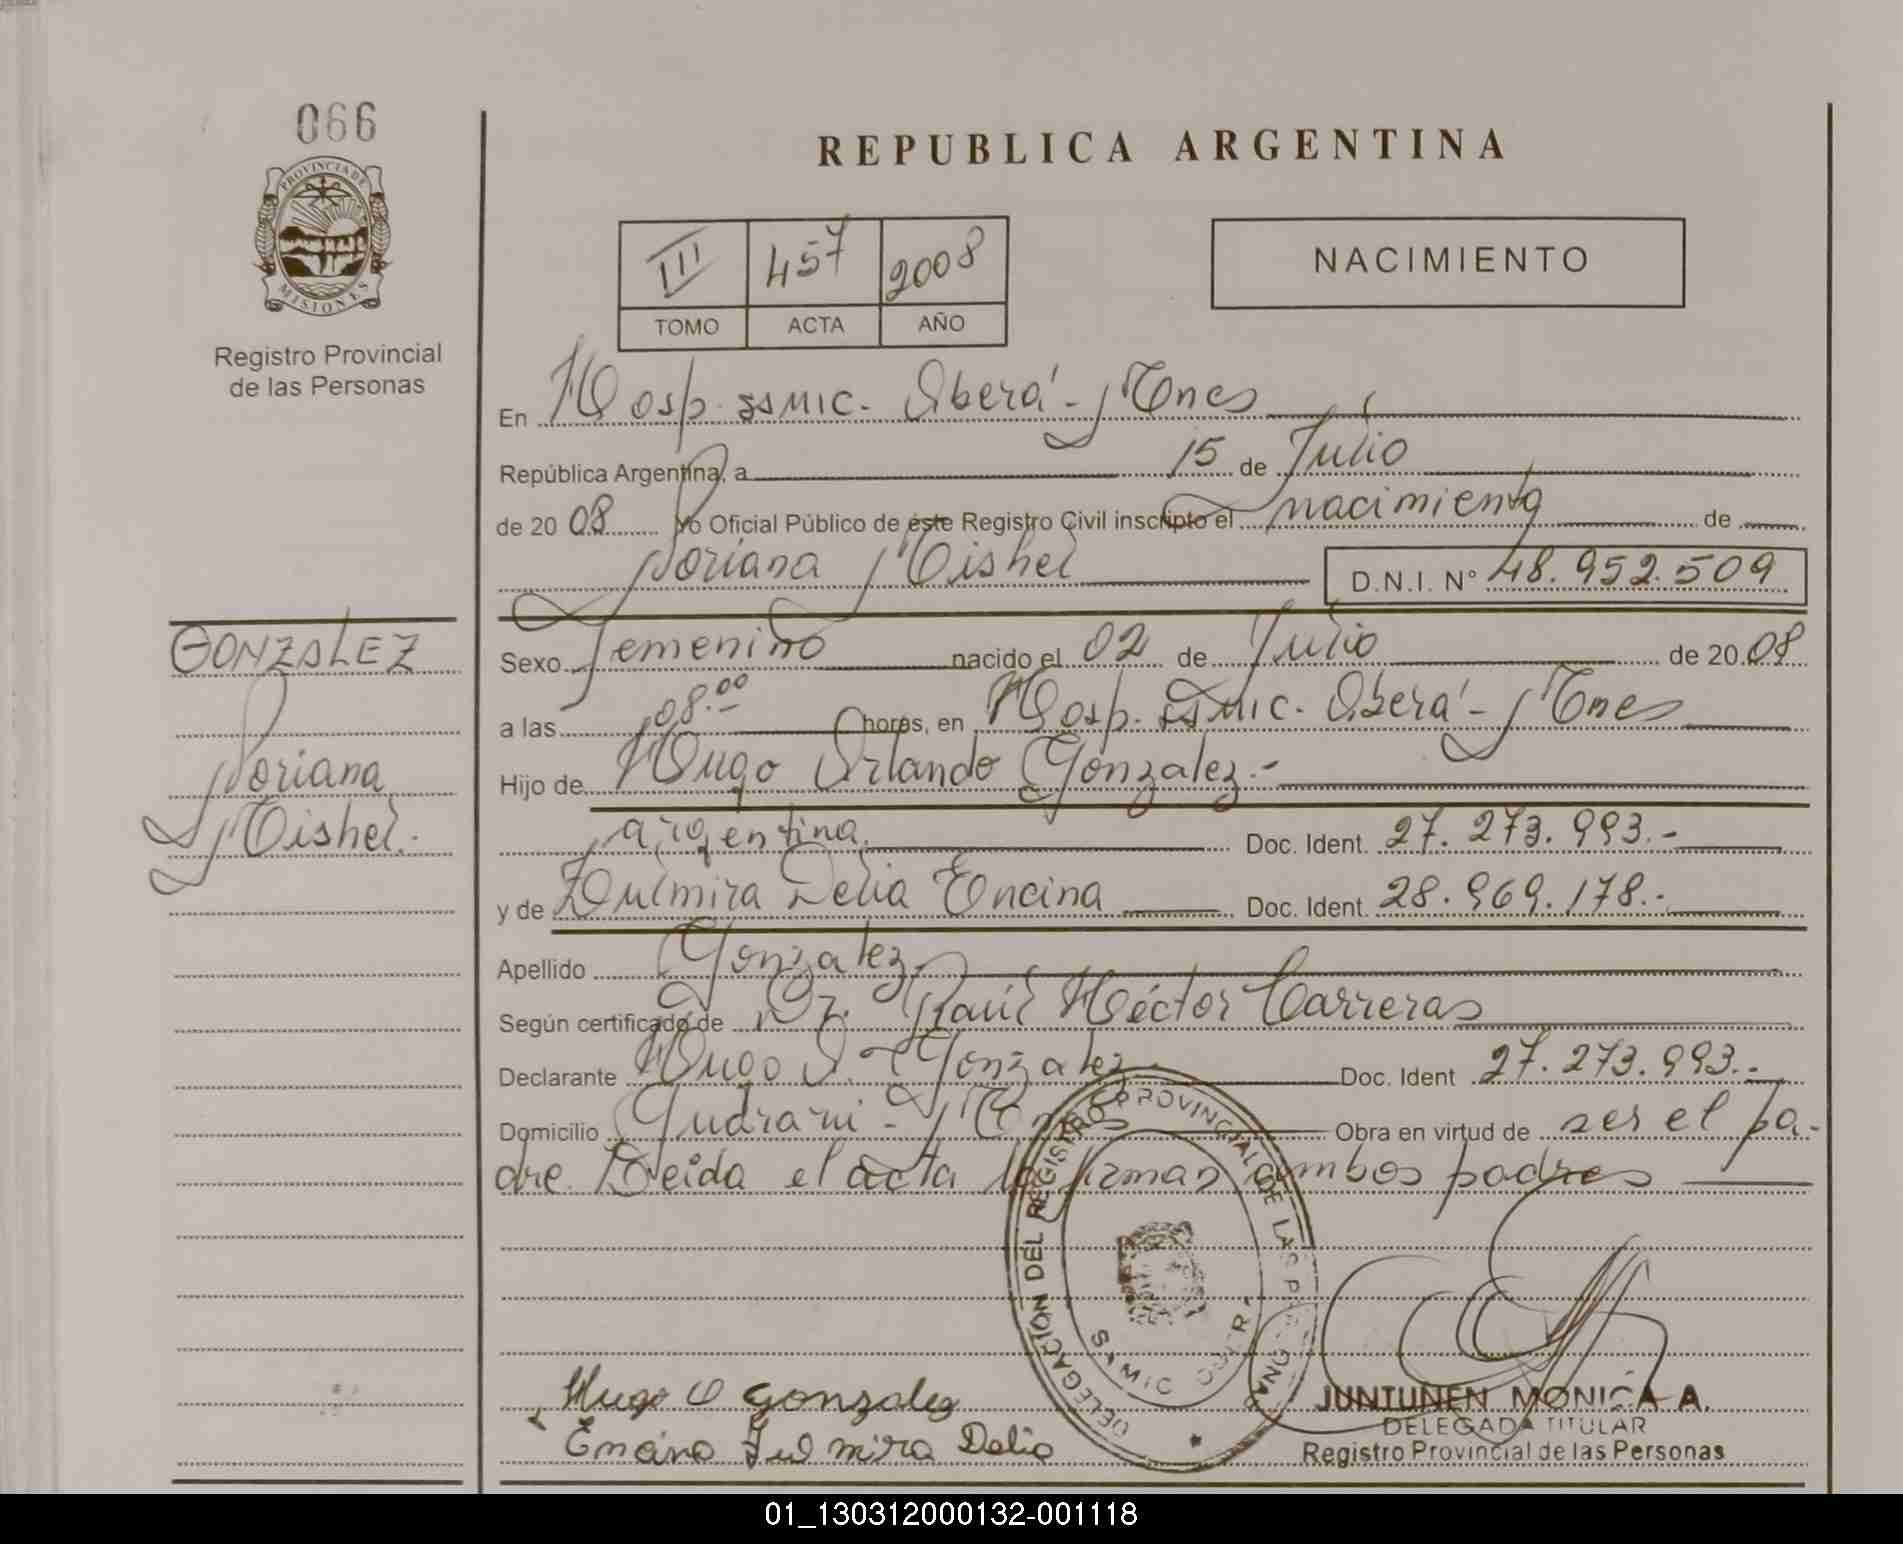 066
PROVINCIA DE
MISIONES
Registro Provincial
de las Personas
REPUBLICA ARGENTINA
III 457 2008
TOMO ACTA AÑO
NACIMIENTO
En Hosp. SAMIC. Oberá - Mnes
República Argentina, a 15 de Julio
de 20 08 Yo Oficial Público de éste Registro Civil inscripto el nacimiento de
Soriana Mishel
D.N.I. N° 48.952.509
GONZALEZ
Soriana
Mishel.
Sexo Femenino nacido el 02 de Julio de 20 08
a las 08.00 horas, en Hosp. SAMIC. Oberá - Mnes
Hijo de Hugo Orlando Gonzalez.-
argentina Doc. Ident. 27.273.993.-
y de Zulmira Delia Encina Doc. Ident. 28.969.178.-
Apellido Gonzalez
Según certificado de Dr. Raúl Héctor Carreras
Declarante Hugo O. Gonzalez Doc. Ident 27.273.993.-
Domicilio Guaraní - Mnes Obra en virtud de ser el pa-
dre. Leida el acta la firman ambos padres
DELEGACION DEL REGISTRO PROVINCIAL DE LAS PERSONAS
SAMIC OBERA
Hugo O gonzalez
Encina Zulmira Delia
JUNTUNEN MONICA A.
DELEGADA TITULAR
Registro Provincial de las Personas
01_130312000132-001118